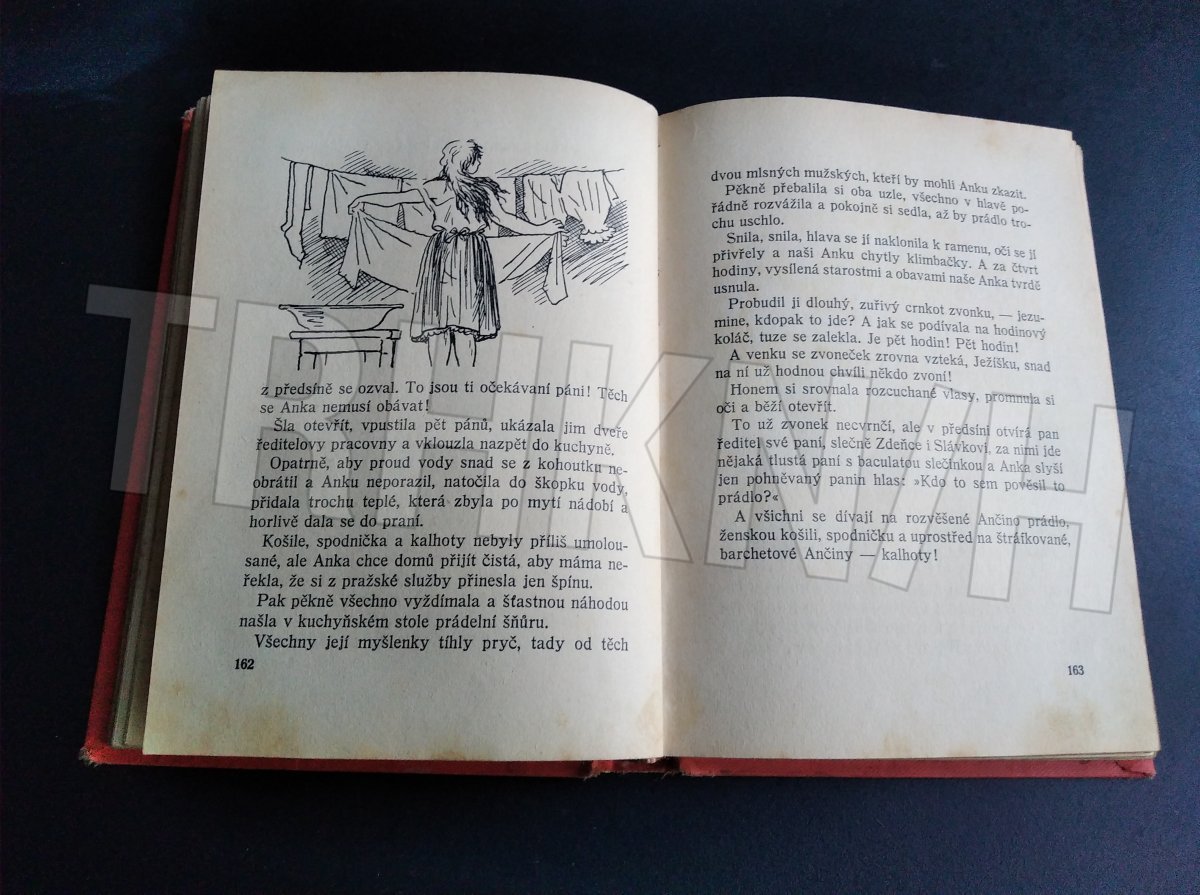 z předsíně se ozval. To jsou ti očekávaní páni! Těch
se Anka nemusí obávat!
Šla otevřít, vpustila pět pánů, ukázala jim dveře
ředitelovy pracovny a vklouzla nazpět do kuchyně.
Opatrně, aby proud vody snad se z kohoutku ne-
obrátil a Anku neporazil, natočila do škopku vody,
přidala trochu teplé, která zbyla po mytí nádobí a
horlivě dala se do praní.
Košile, spodnička a kalhoty nebyly příliš umolou-
sané, ale Anka chce domů přijít čistá, aby máma ne-
řekla, že si z pražské služby přinesla jen špínu.
Pak pěkně všechno vyždímala a šťastnou náhodou
našla v kuchyňském stole prádelní šňůru.
Všechny její myšlenky tíhly pryč, tady od těch
162
dvou mlsných mužských, kteří by mohli Anku zkazit.
Pěkně přebalila si oba uzle, všechno v hlavě po-
řádně rozvážila a pokojně si sedla, až by prádlo tro-
chu uschlo.
Snila, snila, hlava se jí naklonila k ramenu, oči se jí
přivřely a naši Anku chytly klimbačky. A za čtvrt
hodiny, vysílená starostmi a obavami naše Anka tvrdě
usnula.
Probudil ji dlouhý, zuřivý crnkot zvonku, — jezu-
mine, kdopak to jde? A jak se podívala na hodinový
koláč, tuze se zalekla. Je pět hodin! Pět hodin!
A venku se zvoneček zrovna vzteká, Ježíšku, snad
na ní už hodnou chvíli někdo zvoní!
Honem si srovnala rozcuchané vlasy, promnula si
oči a běží otevřít.
To už zvonek necvrnčí, ale v předsíni otvírá pan
ředitel své paní, slečně Zdeňce i Slávkovi, za nimi jde
nějaká tlustá paní s baculatou slečinkou a Anka slyší
jen pohněvaný panin hlas: »Kdo to sem pověsil to
prádlo?«
A všichni se dívají na rozvěšené Ančino prádlo,
ženskou košili, spodničku a uprostřed na štráfkované,
barchetové Ančiny — kalhoty!
163
TRHKNIH